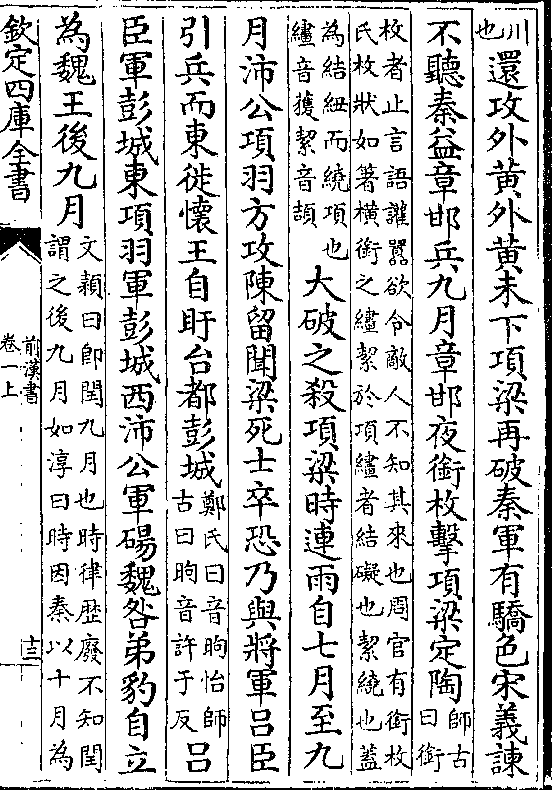 川
也
還攻外黄外黄未下項梁再破秦軍有驕色宋義諫
不聽秦益章邯兵九月章邯夜銜枚擊項梁定陶
師古
曰銜
枚者止言語讙嚻欲令敵人不知其來也周官有銜枚
氏枚狀如箸橫銜之繣絜於項繣者結礙也絜繞也葢
為結紐而繞項也
繣音獲絜音頡
大破之殺項梁時連雨自七月至九
月沛公項羽方攻陳留聞梁死士卒恐乃與將軍呂臣
引兵而東徙懷王自盱台都彭城
鄭氏曰音昫怡師
古曰昫音許于反
呂
臣軍彭城東項羽軍彭城西沛公軍碭魏咎弟豹自立
為魏王後九月
文穎曰即閏九月也時律歴廢不知閏
謂之後九月如淳曰時因秦以十月為
欽定四庫全書
前漢書
卷一上
十三